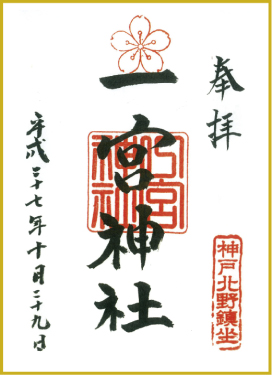 奉拝
一宮神社
一宮神社
神戸北野鎮坐
平成二十七年十月二十九日